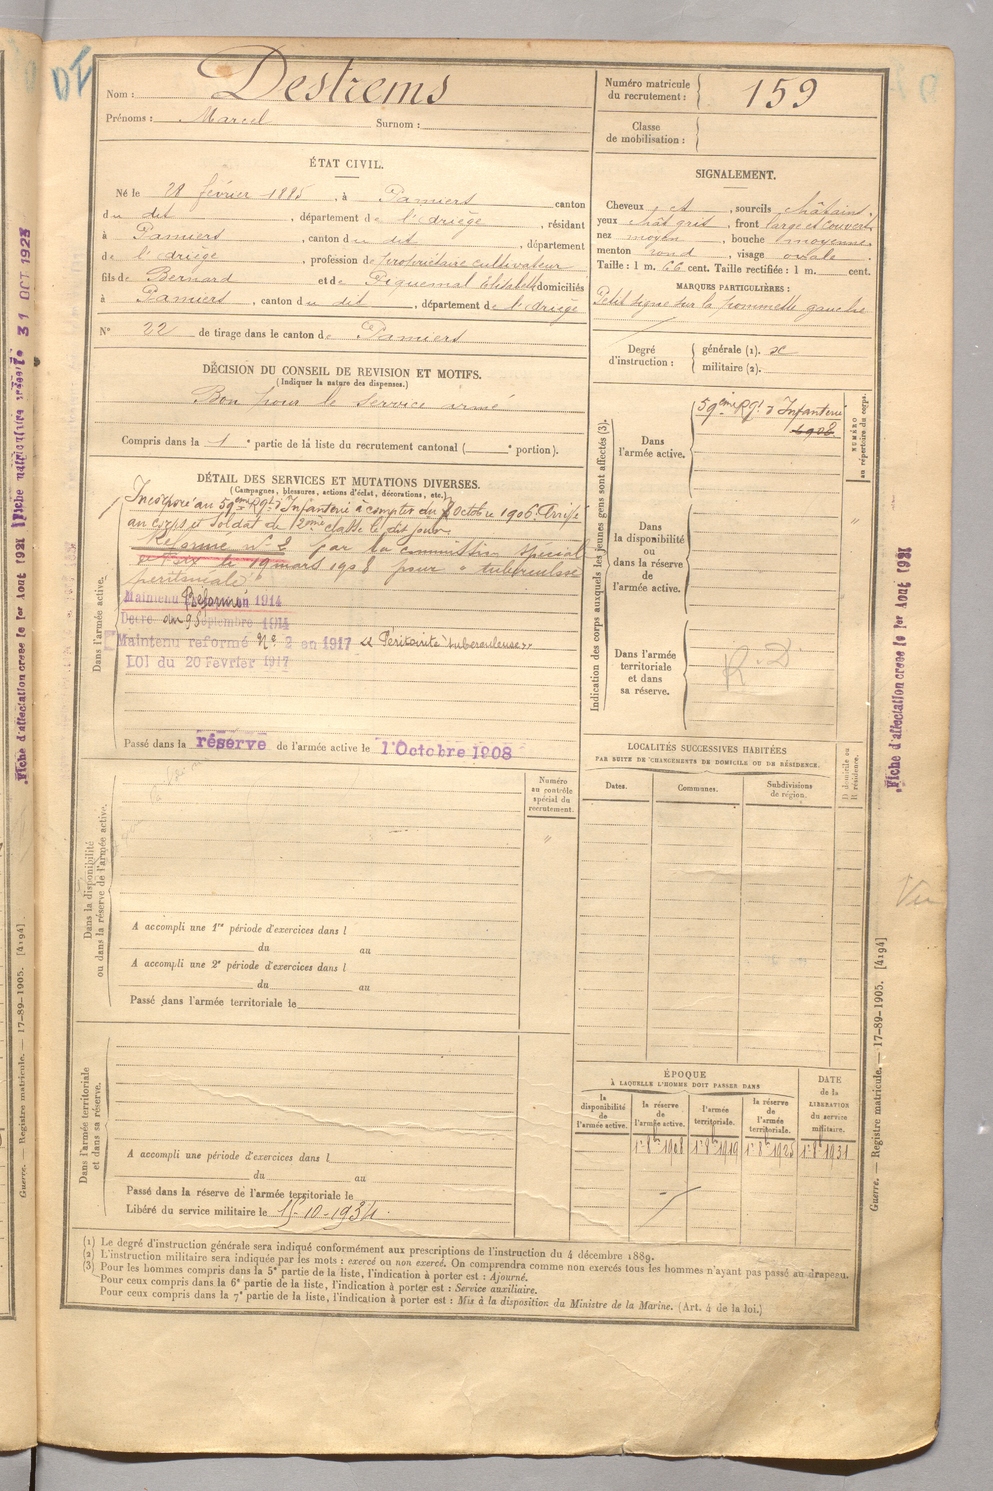 DI
Nom : Destrems
Prénoms : Marcel Surnom :
Numéro matricule du recrutement : 159
Classe de mobilisation :
ÉTAT CIVIL.
Né le 28 février 1885, à Pamiers canton
du dit, département de l'Ariège, résidant
à Pamiers, canton du dit, département
de l'Ariège, profession de propriétaire cultivateur
fils de Bernard et de Piquemal Elisabeth domiciliés
à Pamiers, canton du dit, département de l'Ariège
N° 22 de tirage dans le canton de Pamiers
SIGNALEMENT.
Cheveux et, sourcils châtains,
yeux chât gris, front large et couvert
nez moyen, bouche moyenne
menton rond, visage ovale
Taille : 1 m. 66 cent. Taille rectifiée : 1 m. cent.
MARQUES PARTICULIÈRES :
Petit signe sur la pommette gauche
Degré d'instruction : générale (1). militaire (2).
DÉCISION DU CONSEIL DE REVISION ET MOTIFS.
(Indiquer la nature des dispenses.)
Bon pour le service armé
Compris dans la 1e partie de la liste du recrutement cantonal ( e portion).
DÉTAIL DES SERVICES ET MUTATIONS DIVERSES.
(Campagnes, blessures, actions d'éclat, décorations, etc.)
Dans l'armée active.
Incorporé au 59ème Rgt d'Infanterie à compter du 8 Octobre 1906. Arrivé
au corps et Soldat de 2ème classe le dit jour.
Réformé n° 2 par la commission spéciale
de Foix le 19 mars 1908 pour " tuberculose
péritonéale "
Maintenu Réformé en 1914
Décret du 9 Septembre 1914
Maintenu reformé N° 2 en 1917 « Péritonite tuberculeuse »
LOI du 20 Fevrier 1917
Passé dans la réserve de l'armée active le 1 Octobre 1908
Indication des corps auxquels les jeunes gens sont affectés (3).
Dans l'armée active.
59ème Rgt d'Infanterie
1908
NUMÉRO au répertoire du corps.
"
Dans la disponibilité ou dans la réserve de l'armée active.
Dans l'armée territoriale et dans sa réserve.
R.D
Dans la disponibilité ou dans la réserve de l'armée active.
Numéro au contrôle spécial du recrutement.
"
A accompli une 1re période d'exercices dans l
du au
A accompli une 2e période d'exercices dans l
du au
Passé dans l'armée territoriale le
LOCALITÉS SUCCESSIVES HABITÉES
PAR SUITE DE CHANGEMENTS DE DOMICILE OU DE RÉSIDENCE.
Dates. Communes. Subdivisions de région. D domicile ou R résidence.
Dans l'armée territoriale et dans sa réserve.
A accompli une période d'exercices dans l
du au
Passé dans la réserve de l'armée territoriale le
Libéré du service militaire le 15-10-1934.
ÉPOQUE
À LAQUELLE L'HOMME DOIT PASSER DANS
la disponibilité de l'armée active.
la réserve de l'armée active.
l'armée territoriale.
la réserve de l'armée territoriale.
DATE de la LIBÉRATION du service militaire.
1er 8bre 1908 1er 8bre 1919 1er 8bre 1925 1er 8bre 1931
(1) Le degré d'instruction générale sera indiqué conformément aux prescriptions de l'instruction du 4 décembre 1889.
(2) L'instruction militaire sera indiquée par les mots : exercé ou non exercé. On comprendra comme non exercés tous les hommes n'ayant pas passé au drapeau.
(3) Pour les hommes compris dans la 5e partie de la liste, l'indication à porter est : Ajourné.
Pour ceux compris dans la 6e partie de la liste, l'indication à porter est : Service auxiliaire.
Pour ceux compris dans la 7e partie de la liste, l'indication à porter est : Mis à la disposition du Ministre de la Marine. (Art. 4 de la loi.)
Fiche matriculaire créée le 31 OCT 1923
Fiche d'affectation créée le 1er Aout 1921
Guerre. — Registre matricule. — 17-89-1905. [4194]
Fiche d'affectation créée le 1er Aout 1921
Vu
Guerre. — Registre matricule. — 17-89-1905. [4194]